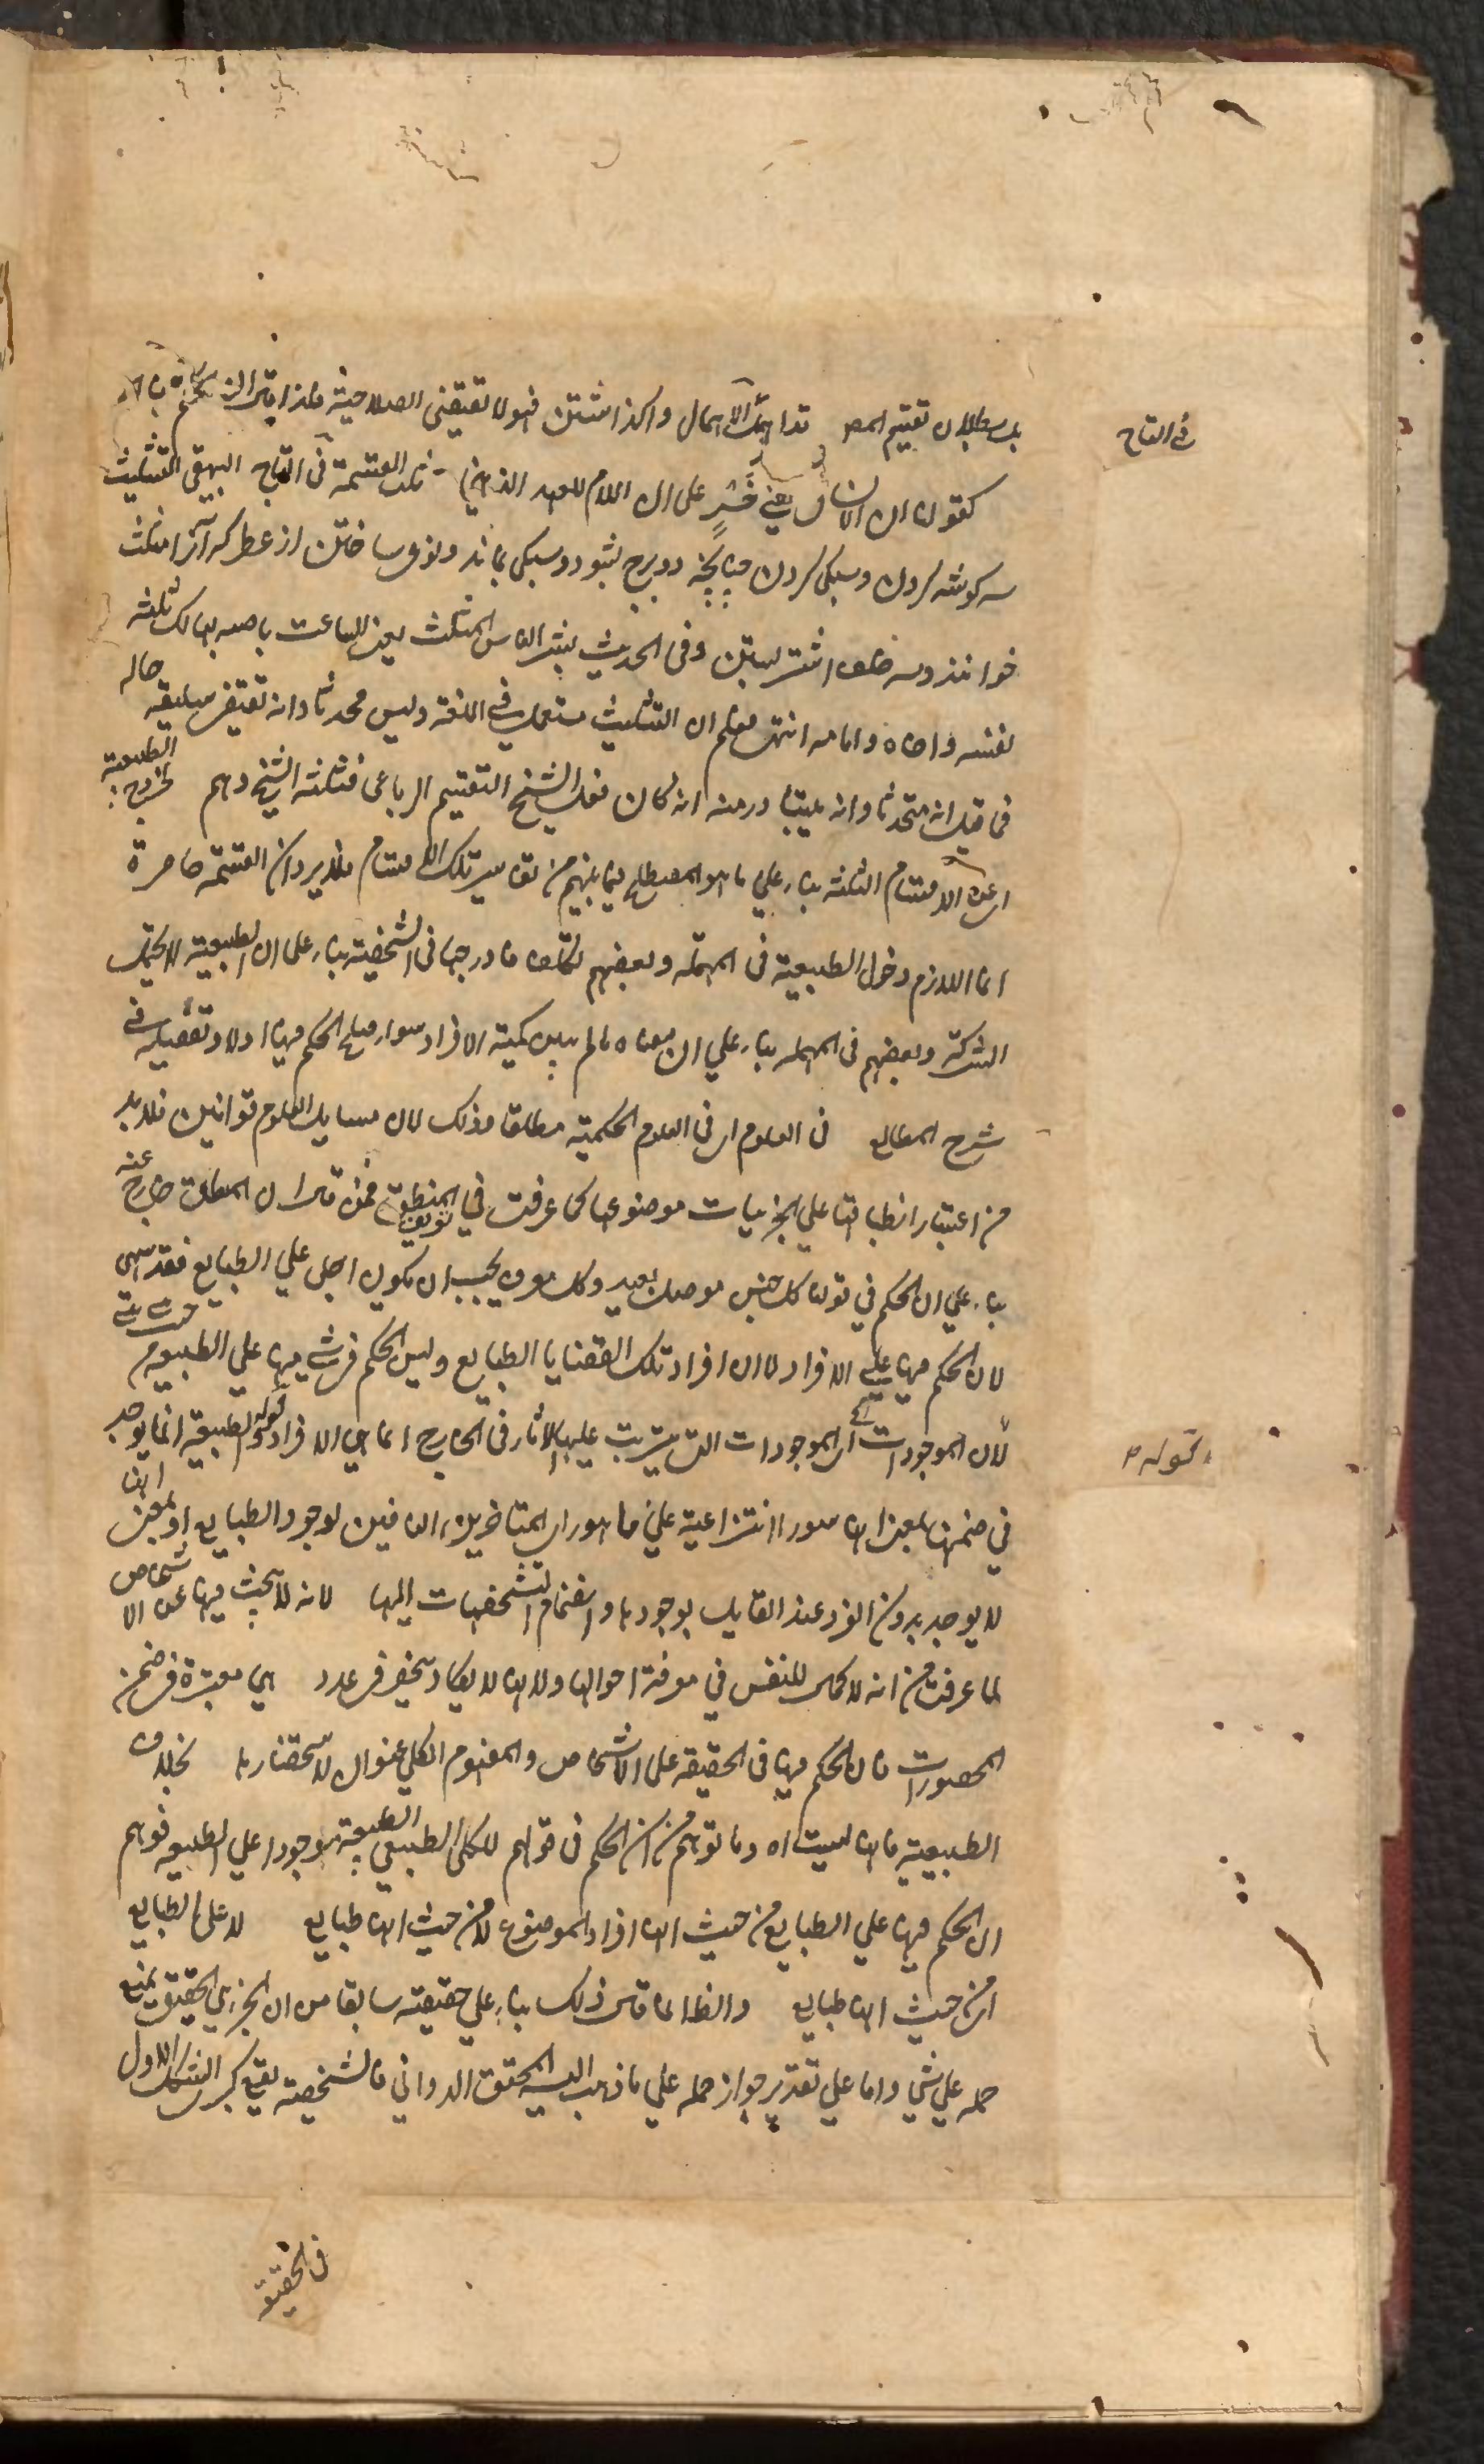 في التاج
كقولنا ان الانسان لفي خسر على ان اللام للعهد الذهني ثلث القسمة في التاج البيهقي التثليث
سه كوشه كردن وسيكى كردن چنانچه دو برخ بشود وسيكى بماند ونوى ساختن از عطر كه آنرا مثلث
خوانند وسه خلف اشتر بستن وفي الحديث شر الناس المثلث يعني الساعي باخيه يهلك ثلثة
نفسه واخاه وامامه انتهى فعلم ان التثليث مستعمل في اللغة وليس محدثا وانه تقتضي سابقية حاله
فما قيل انه متحدثا وانه يتبادر منه انه كان فعل الشيخ التقسيم الرباعي فثلثه الشيخ وهم لخروج الطبيعية
اي عن الاقسام الثلثة بناء على ما هو المصطلح فيما بينهم من تفاسير تلك الاقسام فلا يرد ان القسمة حاصرة
انما اللازم دخول الطبيعية في المهملة وبعضهم تكلفوا فادرجها في الشخصية بناء على ان الطبيعية لا يحتمل
الشركة وبعضهم في المهملة بناء على ان معناه ما لم يبين كمية الافراد سواء صلح الحكم فيها اولا وتفصيله في
شرح المطالع في العلوم اي في العلوم الحكمية مطلقا وذلك لان مسايل العلوم قوانين فلابد
من اعتبار انطباقها على الجزئيات موضوعها كما عرفت في تعريف المنطق فمن قال ان المطلق خارج عنه
بناء على ان الحكم في قولنا كل جنس موصل بعيد وكل معرف يجب ان يكون اجلى على الطبايع فقد سهى
لان الحكم فيها على الافراد لا ان افراد تلك القضايا الطبايع وليس الحكم في شيء منها على الطبيعة من حيث هي
لان الموجودات اي الموجودات التي يترتب عليها الآثار في الخارج انما هي الافراد قوله والطبيعة انما يوجد
قوله
في ضمنها بمعنى انها امور انتزاعية على ما هو راي المتاخرين النافين لوجود الطبايع او بمعنى انها
لا يوجد بدون الفرد عند القايل بوجودها وانضمام التشخصات اليها لانه لا يبحث فيها عن الاشخاص
لما عرفت من انه لا كمال للنفس في معرفة احوالها ولانها لا يكاد ينحصر في عدد هي معتبرة في ضمن
المحصورات فان الحكم فيها في الحقيقة على الاشخاص والمفهوم الكلي عنوان لاستحضارها بخلاف
الطبيعية فانها ليست اه وما توهم من ان الحكم في قولهم الكلي الطبيعي موجودا على الطبيعة فوهم
ان الحكم فيها على الطبايع من حيث انها افراد الموضوع لا من حيث انها طبايع لا على الطبايع
اي من حيث انها طبايع والظ انما قال ذلك بناء على حقيقته سابقا من ان الجزئي الحقيقي يمتنع
حمله على شي واما على تقدير جواز حمله على ما ذهب اليه المحقق الدواني فالشخصية يقع كبرى الشكل الاول
في الحقيقة